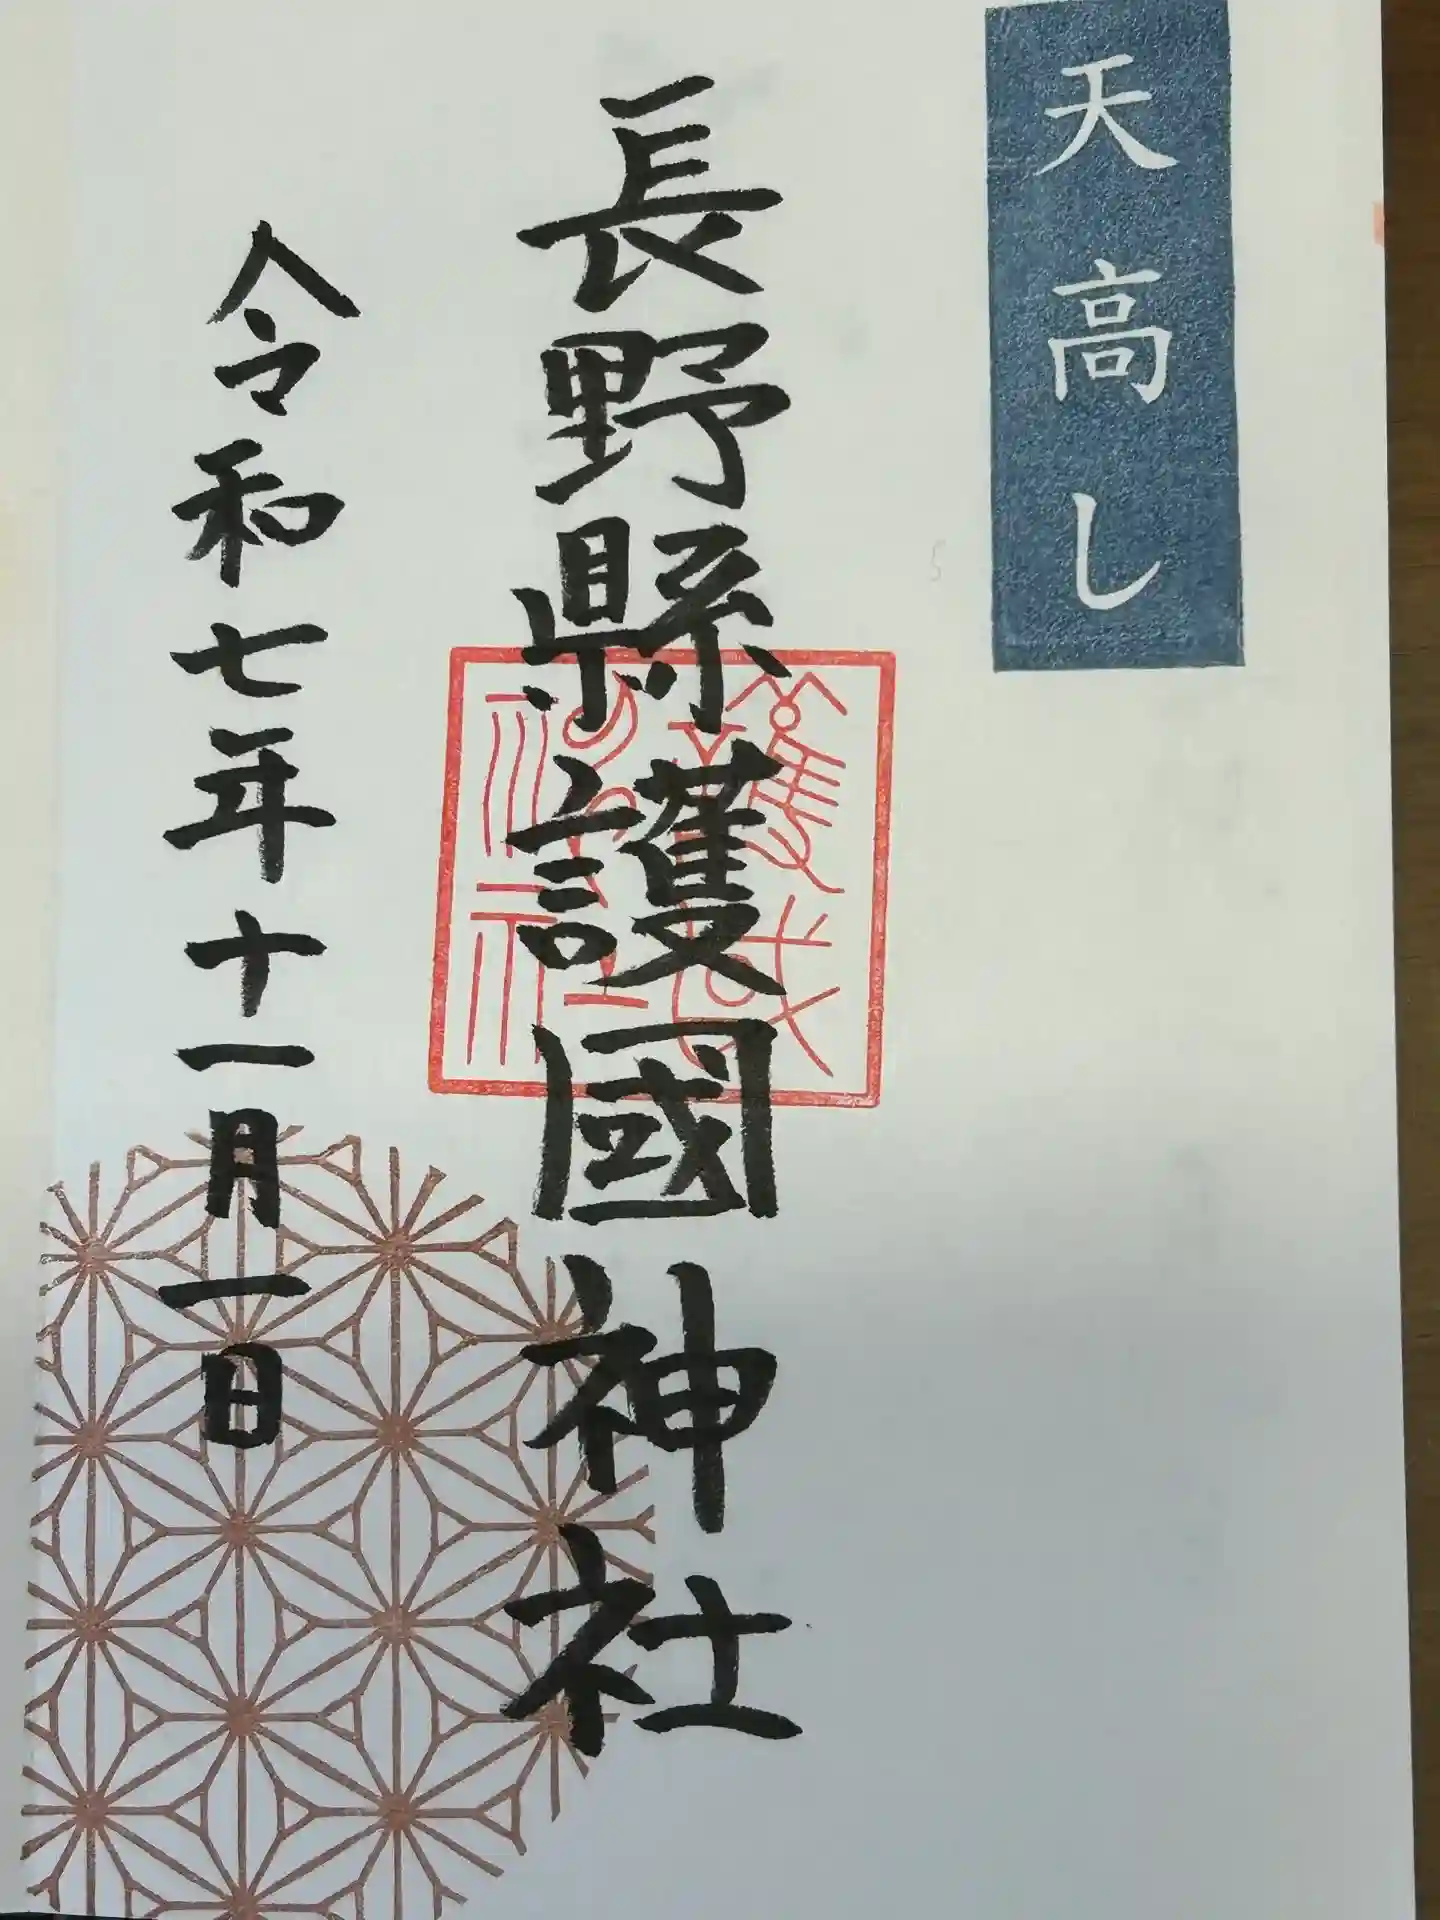 天高し
長野縣護國神社
令和七年十一月一日